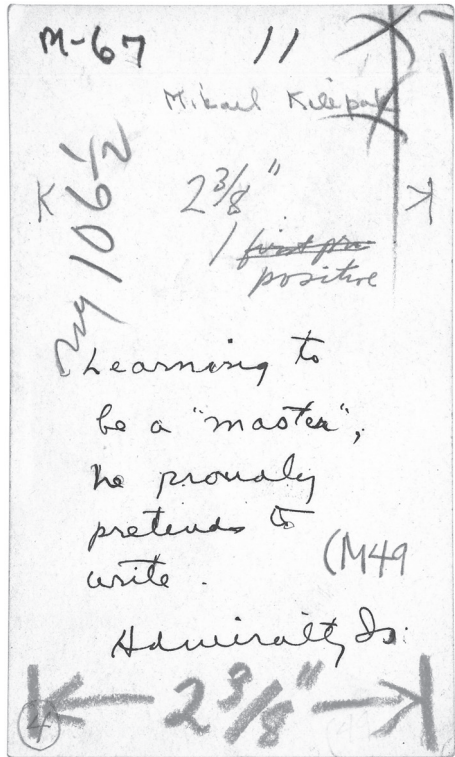 M-67
11
Mikail Kilepak
2 3/8"
1 first pri
positive
my 106½
Learning to
be a "master",
he proudly
pretends to
write.
(M49
Admiralty Is.
2 3/8"
4